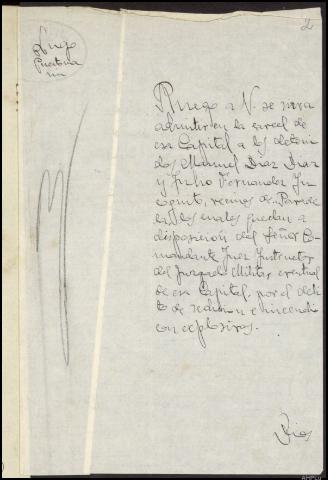 Lugo
2
Ruego a V. se sirva
admitir en la carcel de
esa Capital a los deteni
dos Manuel Diaz Diaz
y Julio Fernandez
vecinos de Parade
la los cuales quedan a
disposición del Señor Co-
mandante Juez Instructor
del Juzgado Militar eventual
de esa Capital, por el deli-
to de sedición e incendio
con explosivos.
Dios
AHPLu